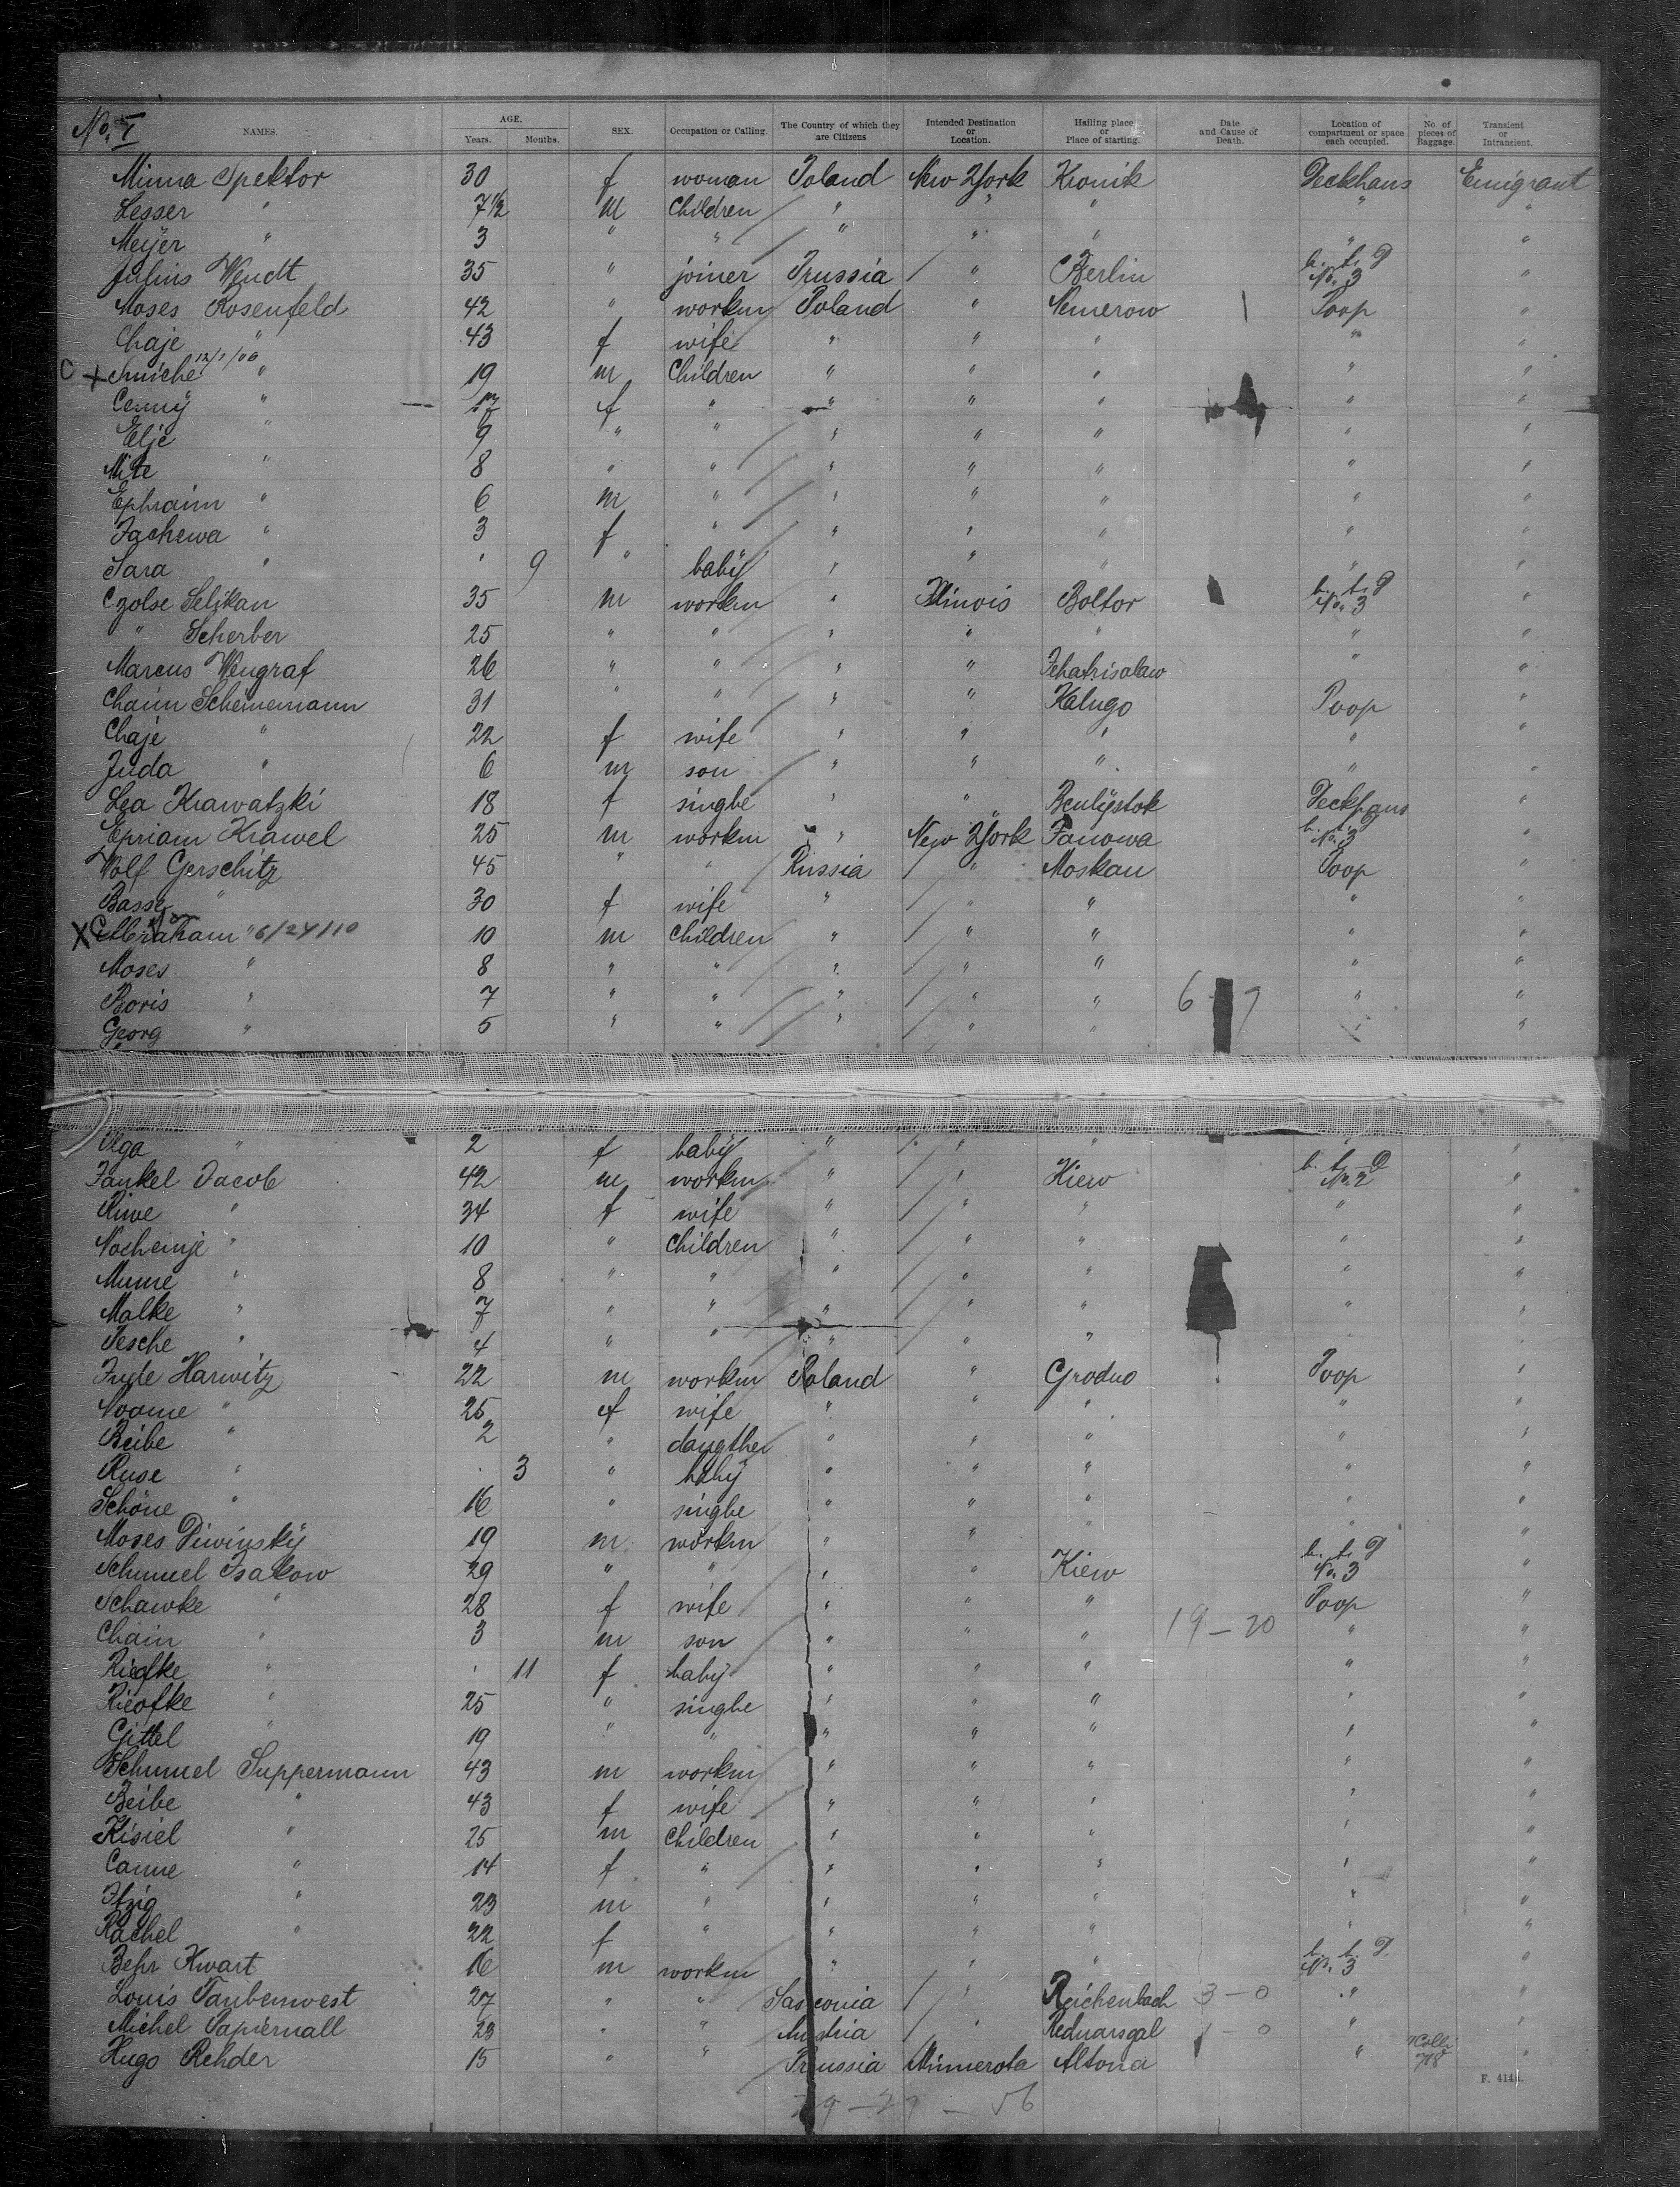 No. I
NAMES. AGE. Years. Months. SEX. Occupation or Calling. The Country of which they are Citizens Intended Destination or Location. Hailing place or Place of starting. Date and Cause of Death. Location of compartment or space each occupied. No. of pieces of Baggage. Transient or Intransient.
Minna Spektor 30 f woman Poland New York Kronik Deckhaus Emigrant
Lesser " 7 1/2 m Children " " " " "
Meÿer " 3 " " " " " " "
Julius Wendt 35 " joiner Prussia " Berlin b. t. D No. 3 "
Moses Rosenfeld 42 " workm Poland " Nemerow Poop "
Chaje " 43 f wife " " " " "
C + 12/1/06 " 19 m Children " " " " "
" 17 f " " " " " "
Elje " 9 " " " " " " "
Mite " 8 " " " " " " "
Ephraim " 6 m " " " " " "
Jachewa " 3 f " " " " " "
Sara " 9 " baby " " " " "
Czolse Selikan 35 m workm " Illinois Boltor b. t. D No. 3 "
" Scherber 25 " " " " " " "
Marcus Wengraf 26 " " " " " "
Chaim Scheinemann 31 " " " " Kalugo Poop "
Chaje " 22 f wife " " " " "
Juda " 6 m son " " " " "
Lea Krawatzki 18 f singbe " " Deckhaus "
Epriam Krawel 25 m workm " New York Janowa b. t. D No. 3 "
Wolf Gerschitz 45 " " Russia " Moskau Poop "
Basse " 30 f wife " " " " "
X C Abraham " 6/24/10 10 m Children " " " " "
Moses " 8 " " " " " " "
Boris " 7 " " " " " 6 - 7 " "
Georg " 5 " " " " " " "
Olga " 2 f baby " " " " "
Jankel Jacob 42 m workm " " Kiew b. t. D No. 2 "
Riwe " 34 f wife " " " " "
Nocheinje " 10 " Children " " " " "
Mume " 8 " " " " " " "
Malke " 7 " " " " " " "
Pesche " 4 " " " " " " "
Jude Harwitz 22 m workm Poland " Grodno Poop "
Noame " 25 f wife " " " " "
Beibe " 2 " daygther " " " " "
Ruse " 3 " baby " " " " "
Schöne " 16 " singbe " " " " "
Moses Piwinskÿ 19 m workm " " " " "
Schmuel Isakow 29 " " " " Kiew b. t. D No. 3 "
Schawke " 28 f wife " " " Poop "
Chain " 3 m son " " " 19 - 20 " "
" 11 f baby " " " " "
" 25 " singbe " " " " "
Gittel " 19 " " " " " " "
Schmuel Suppermann 43 m workm " " " " "
Beibe " 43 f wife " " " " "
Kisiel " 25 m Children " " " " "
Canne " 14 f " " " " " "
Itzig " 23 m " " " " " "
Rachel " 22 f " " " " " "
Behr Kwart 16 m workm " " " b. t. D. No. 3 "
Louis Taubenwest 27 " " " Reichenbach 3 - 0 " "
Michel Papiernall 23 " " Austria " 1 - 0 " "
Hugo Rehder 15 " " Prussia Minnerota Altona " "
F. 414